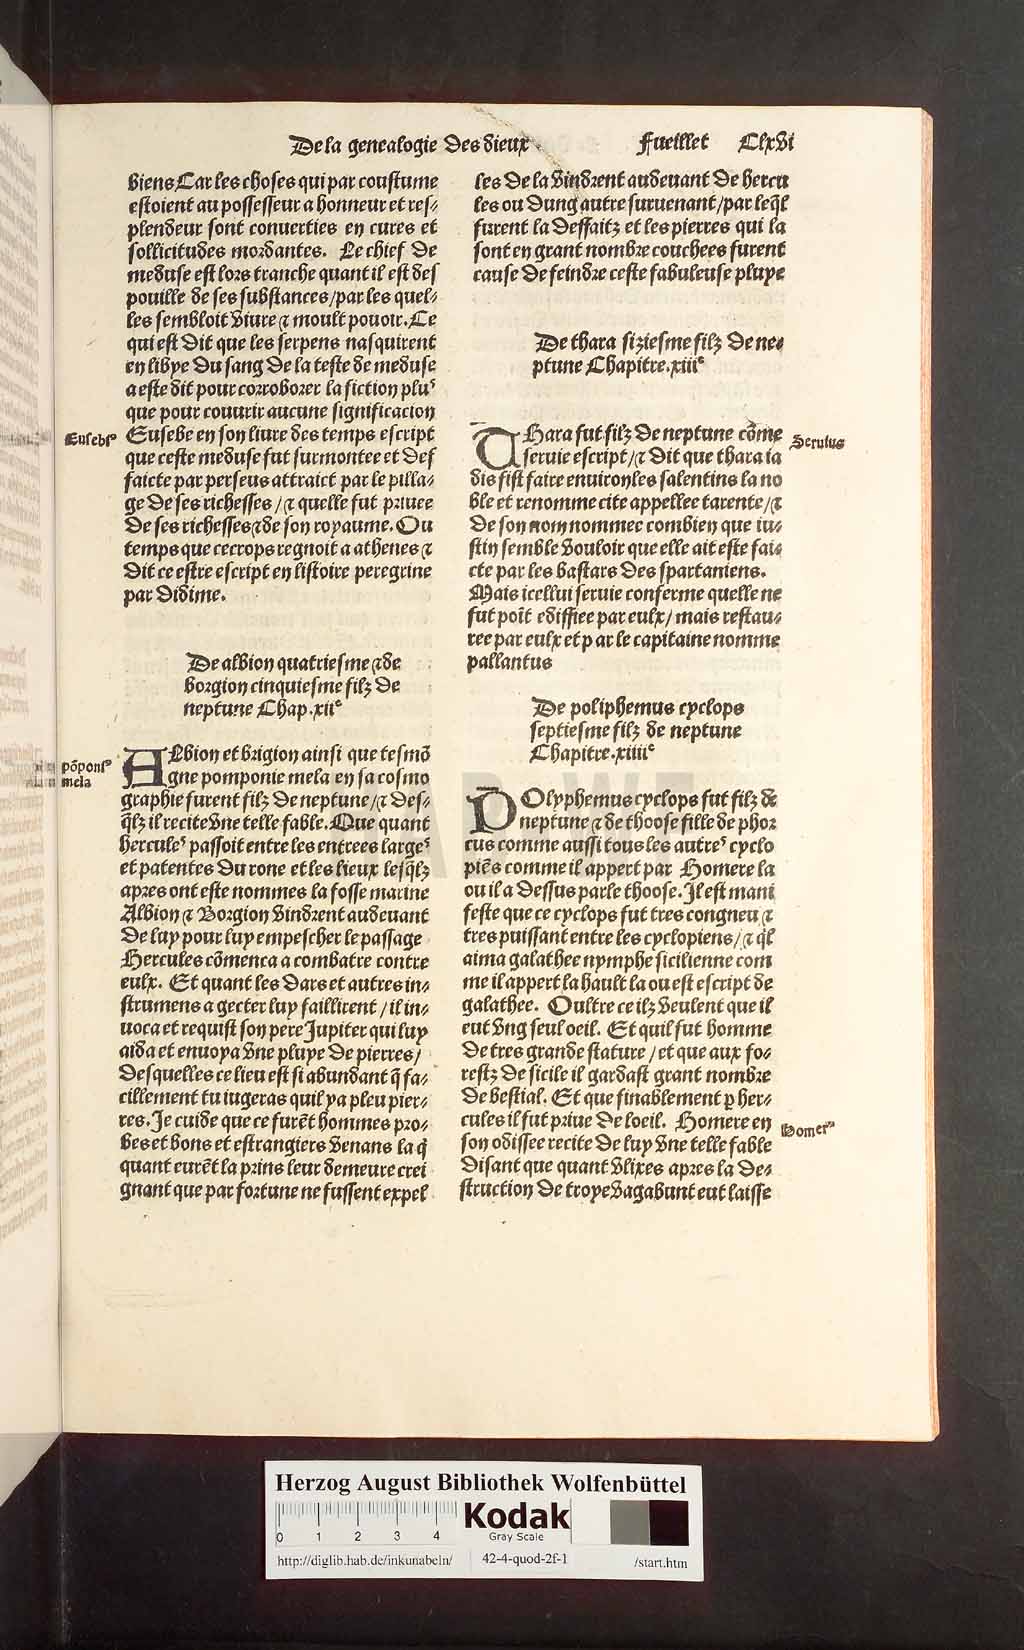 De la genealogie des dieux
Fueillet Clxvi
biens Car les choses qui par coustume
estoient au possesseur a honneur et res⸗
plendeur sont conuerties en cures et
sollicitudes mordantes. Le chief de
meduse est lors tranche quant il est des
pouille de ses substances/par les quel⸗
les sembloit viure ⁊ moult pouoir. Ce
qui est dit que les serpens nasquirent
en libye du sang de la teste de meduse
a este dit pour corroborer la fiction pluꝰ
que pour couurir aucune significacion
Eusebe en son liure des temps escript
que ceste meduse fut surmontee et def
faicte par perseus attraict par le pilla⸗
ge de ses richesses/⁊ quelle fut priuee
de ses richesses ⁊ de son royaume. Ou
temps que cecrops regnoit a athenes ⁊
dit ce estre escript en listoire peregrine
par didime.
Eusebꝰ
De albion quatriesme ⁊ de
borgion cinquiesme filz de
neptune Chap.xiiᵉ
Albion et brigion ainsi que tesmō
gne pomponie mela en sa cosmo
graphie furent filz de neptune/⁊ des⸗
q̄lz il recite vne telle fable. Que quant
herculeꝰ passoit entre les entrees largeꝰ
et patentes du rone et les lieux lesq̄lz
apres ont este nommes la fosse marine
Albion ⁊ Borgion vindrent audeuant
de luy pour luy empescher le passage
Hercules cōmenca a combatre contre
eulx. Et quant les dars et autres in⸗
strumens a gecter luy faillirent/il in⸗
uoca et requist son pere Jupiter qui luy
aida et enuoya vne pluye de pierres/
desquelles ce lieu est si abundant q̄ fa⸗
cillement tu iugeras quil y a pleu pier⸗
res. Je cuide que ce furēt hommes pro⸗
bes et bons et estrangiers venans la q̄
quant eurēt la prins leur demeure crei
gnant que par fortune ne fussent expel
pōponꝰ
mela
les de la vindrent audeuant de hercu
les ou dung autre suruenant/par leq̄l
furent la deffaitz et les pierres qui la
sont en grant nombre couchees furent
cause de feindre ceste fabuleuse pluye
De thara siziesme filz de ne⸗
ptune Chapitre.xiiiᵉ
THara fut filz de neptune cōme
seruie escript/⁊ dit que thara ia
dis fist faire enuiron les salentins la no
ble et renomme cite appellee tarente/⁊
de son nom nommee combien que iu⸗
stin semble vouloir que elle ait este fai⸗
cte par les bastars des spartaniens.
Mais icellui seruie conferme quelle ne
fut poīt ediffiee par eulx/mais restau⸗
ree par eulx et p ar le capitaine nomme
pallantus
Seruius
De poliphemus cyclops
septiesme filz de neptune
Chapitre.xiiiiᵉ
POlyphemus cyclops fut filz de
neptune ⁊ de thoose fille de phor
cus comme aussi tous les autreꝰ cyclo
piēs comme il appert par Homere la
ou il a dessus parle thoose. Il est mani
feste que ce cyclops fut tres congneu ⁊
tres puissant entre les cyclopiens/⁊ q̄l
aima galathee nymphe sicilienne com
me il appert la hault la ou est escript de
galathee. Oultre ce ilz veulent que il
eut vng seul oeil. Et quil fut homme
de tres grande stature/et que aux fo⸗
restz de sicile il gardast grant nombre
de bestial. Et que finablement ꝑ her⸗
cules il fut priue de loeil. Homere en
son odissee recite de luy vne telle fable
disant que quant vlixes apres la de⸗
struction de troye vagabunt eut laisse
Homerꝰ
HAB WF
Herzog August Bibliothek Wolfenbüttel
0 1 2 3 4
Kodak
Gray Scale
http://diglib.hab.de/inkunabeln/ 42-4-quod-2f-1 /start.htm